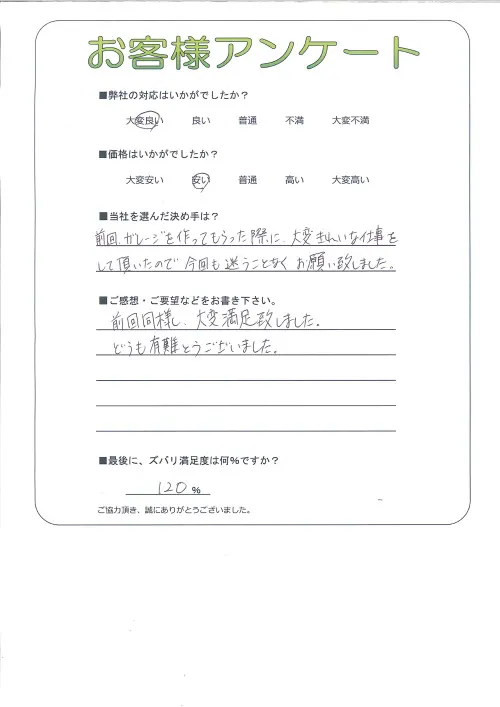 お客様アンケート
■弊社の対応はいかがでしたか？
大変良い 良い 普通 不満 大変不満
■価格はいかがでしたか？
大変安い 安い 普通 高い 大変高い
■当社を選んだ決め手は？
前回、ガレージを作ってもらった際に、大変きれいな仕事を
して頂いたので今回も迷うことなくお願い致しました。
■ご感想・ご要望などをお書き下さい。
前回同様、大変満足致しました。
どうも有難とうございました。
■最後に、ズバリ満足度は何％ですか？
120 ％
ご協力頂き、誠にありがとうございました。